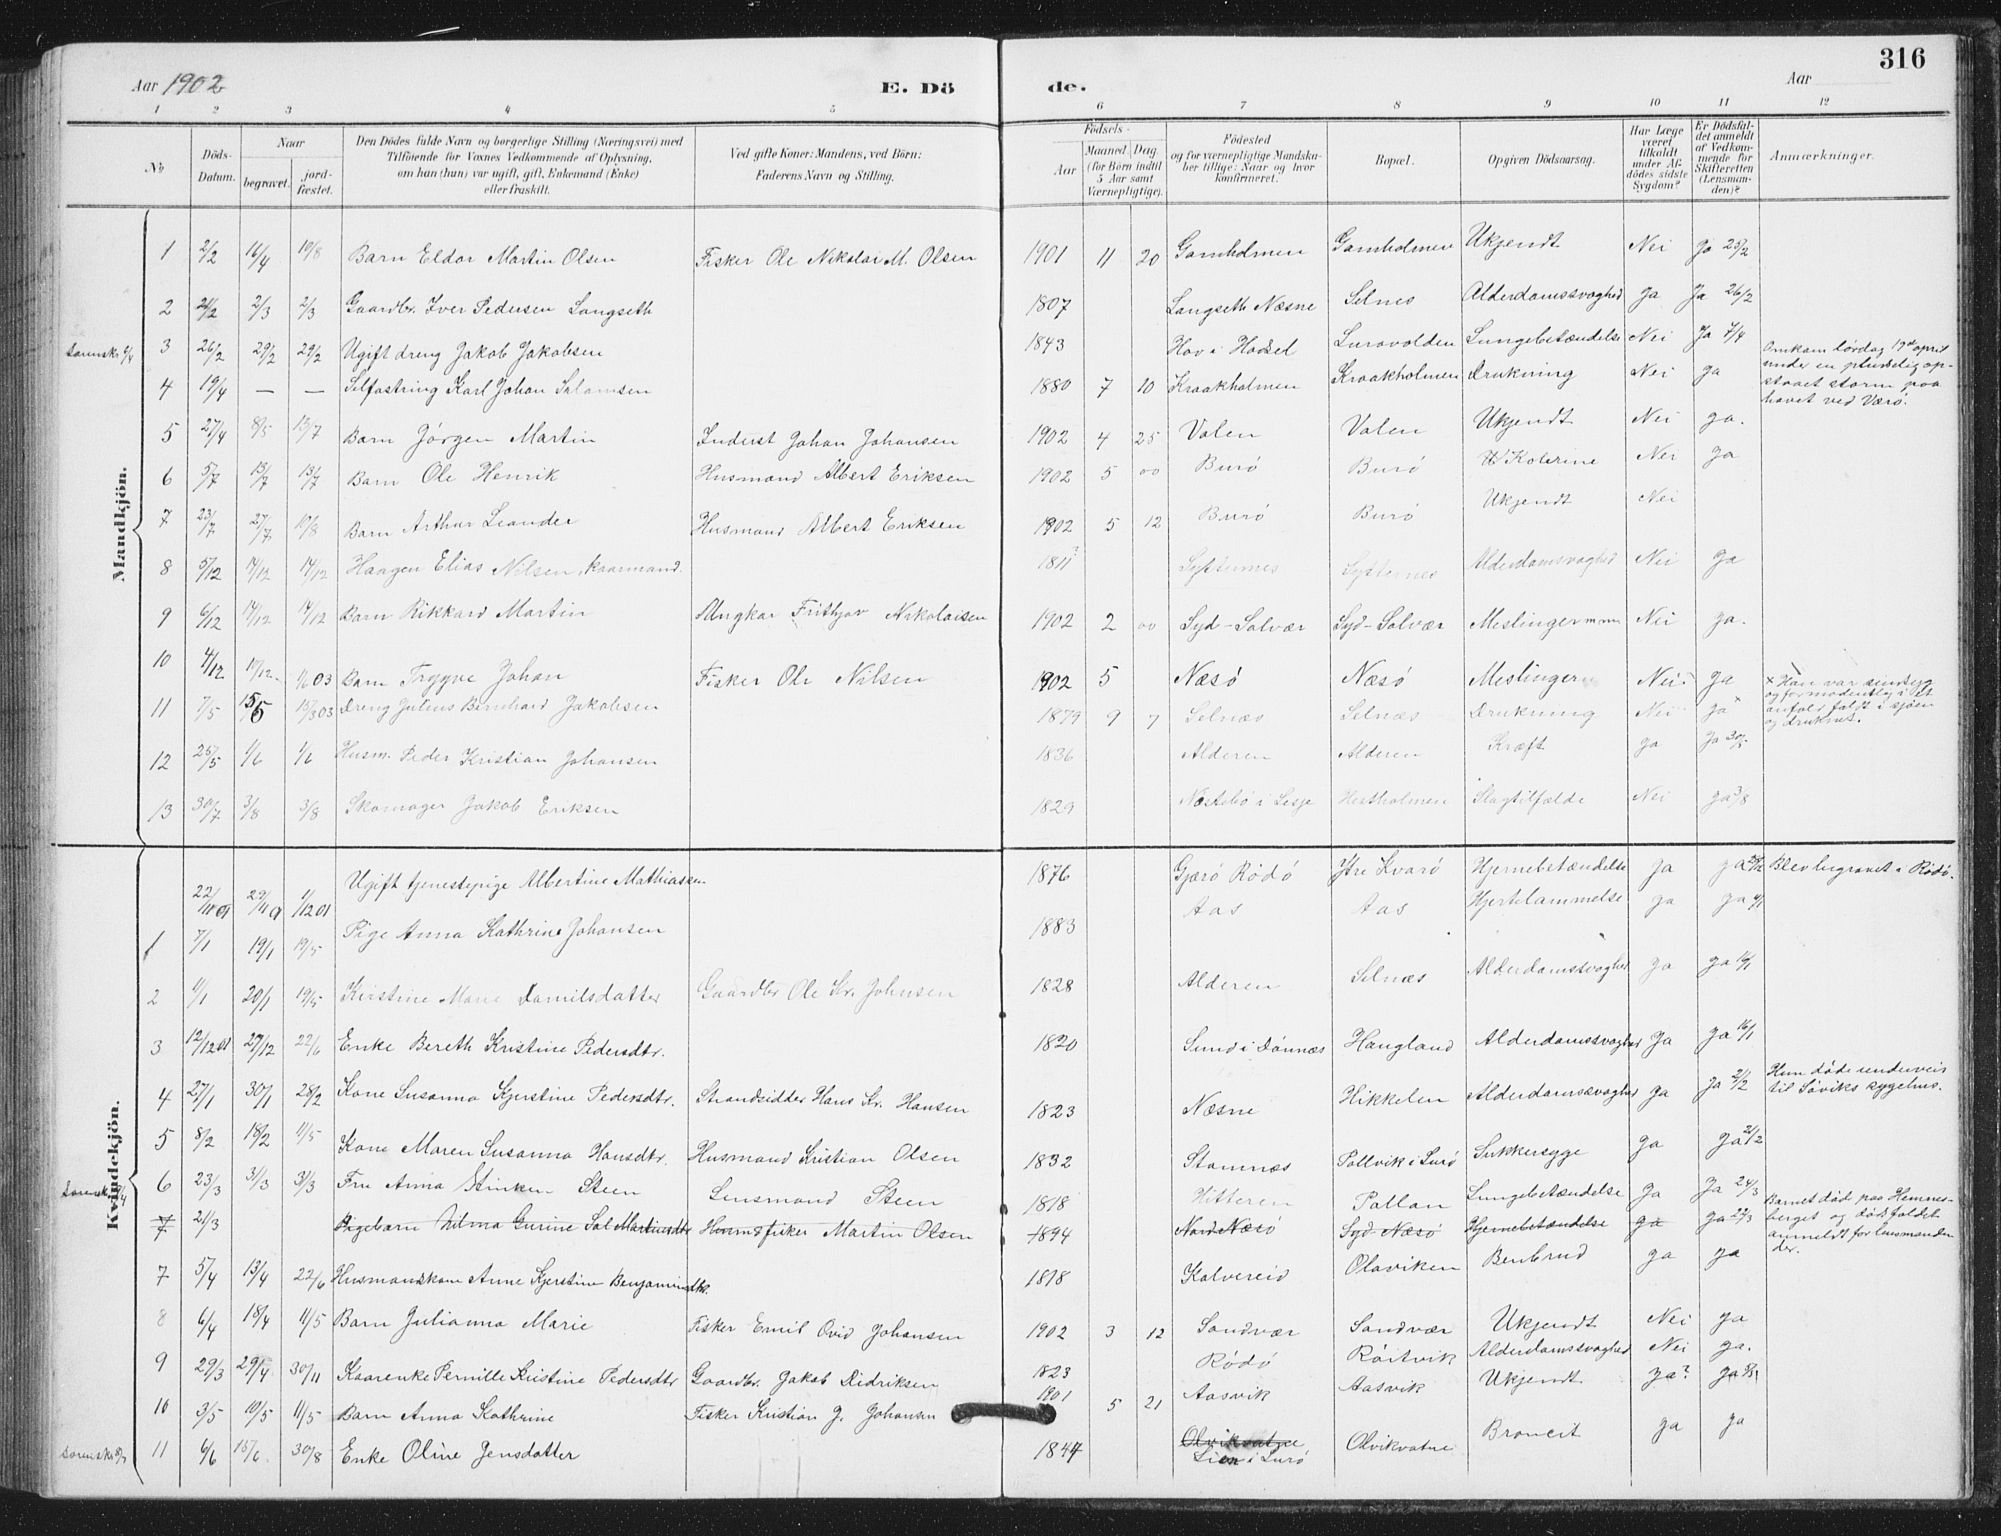 316
Aar 1902 E. Dö de. Aar
1 2 3 4 5 6 7 8 9 10 11 12
No
Döds-Datum.
Naar begravet. jordfæstet.
Den Dödes fulde Navn og borgerlige Stilling (Næringsvei) med
Tilföiende for Voxnes Vedkommende af Oplysning,
om han (hun) var ugift, gift, Enkemand (Enke)
eller fraskilt.
Ved gifte Koner: Mandens, ved Börn:
Faderens Navn og Stilling.
Födsels-
Aar Maaned. Dag.
(for Börn indtil
5 Aar samt
Værnepligtige).
Födested
og for værnepligtige Mandska-
ber tillige: Naar og hvor
konfirmeret.
Bopæl.
Opgiven Dödsaarsag.
Har Læge
været
tilkaldt
under Af-
dödes sidste
Sygdom?
Er Dödsfal-
det anmeldt
af Vedkom-
mende for
Skifteretten
(Lensman-
den)?
Anmærkninger.
Mandkjön.
1 2/2 16/4 10/8 Barn Eldor Martin Olsen Fisker Ole Nikolai M. Olsen 1901 11 20 Gamholmen Gamholmen Ukjendt Nei Ja 25/2
2 24/2 2/3 2/3 Gaardbr. Iver Pedersen Langseth 1807 Langseth Næsne Selnes Alderdomssvaghed Ja Ja 26/2
3 26/2 29/2 29/2 Ugift dreng Jakob Jakobsen 1843 Hov i Hadsel Lurovolden Lungebetændelse Nei Ja 7/4
4 19/4 — — Selfostring Karl Johan Salamsen 1880 7 10 Kraakholmen Kraakholmen Drukning Nei Ja
Omkom lördag 19de april
under en pludselig op-
staaet storm paa
havet ved Værö.
5 27/4 8/5 13/7 Barn Jörgen Martin Inderst Johan Johansen 1902 4 25 Valen Valen Ukjendt Nei Ja.
6 5/7 13/7 13/7 Barn Ole Henrik Husmand Albert Eriksen 1902 5 00 Burö Burö Kolerine Nei Ja
7 23/7 27/7 10/8 Barn Arthur Leander Husmand Albert Eriksen 1902 5 12 Burö Burö Ukjendt Nei
8 5/12 14/12 14/12 Haagen Elias Nilsen, kaarmand. 1811? Systernes Systernes Alderdomssvaghed Nei Ja
9 6/12 14/12 14/12 Barn Rikkard Martin Ungkar Frithjov Nikolaisen 1902 2 00 Syd-Solvær Syd-Solvær Meslinger m.m. Nei Ja.
10 4/12 14/12 1/6 03 Barn Trygve Johan Fisker Ole Nilsen 1902 5 Næsö Næsö Meslinger Nei Ja
11 7/5 15/5 15/3 03 Dreng Julius Bernhard Jakobsen 1879 9 7 Selnæs Selnæs Drukning Nei Ja x
x Han var sindsyg
og formodentlig i et
anfald faldt i sjöen
og druknet.
12 25/5 1/6 1/6 Husm. Peder Kristian Johansen 1836 Alderen Alderen Kræft Ja Ja 30/5
13 30/7 3/8 3/8 Skomager Jakob Eriksen 1829 Næstebö i Lesje Hestholmen Slagtilfælde Nei Ja 3/8
Kvindekjön.
22/11 01 29/11 01 1/12 01 Ugift tjenestepige Albertine Mathiassen 1876 Gjærö Rödö Ytre Kvarö Hjernebetændelse Ja Ja Blev begravet i Rödö.
1 7/1 19/1 19/5 Pige Anna Kathrine Johansen 1883 Aas Aas Hjertelammelse Ja Ja
2 20/1 19/5 Kirstine Marie Danielsdatter Gaardbr Ole Kr. Johnsen 1828 Alderen Selnæs Alderdomssvaghed Ja Ja
3 12/12 01 27/12 22/6 Enke Bereth Kristine Pedersdtr. 1820 Sund i Dönnæs Haugland Alderdomssvaghed Ja Ja 16/1
4 27/1 30/1 28/2 Kone Susanna Kjerstine Pedersdtr. Strandsidder Hans Kr. Hansen 1823 Næsne Hikkelen Alderdomssvaghed Ja Ja 2/2
Hun döde underveis
til Söviks sygehus.
5 8/2 18/2 11/5 Kone Maren Susanna Hansdtr. Husmand Kristian Olsen 1832 Stamnæs Pollvik i Lurö Sukkersyge Ja Ja 21/2
6 23/3 31/3 31/3 Fru Anna Steen Lensmand Steen 1818 Hitteren Pollan Lungebetændelse Ja Ja 24/3
7 21/3 Pigebarn Nilma Gurine Sal. Martinsdtr Husmd fisker Martin Olsen 1894 Nord-Næsö Syd-Næsö Hjernebetændelse Ja Ja 22/3
Barnet död paa Hemnes-
berget og dödsfaldet
anmeldt for lensmanden
der.
7 5/4 13/4 22/6 Husmandskone Anne Kjerstine Benjaminsdtr. 1818 Kalvereid Olaviken Benbrud Ja Ja
8 6/4 18/4 11/5 Barn Julianna Marie Fisker Emil Ovid Johansen 1902 3 12 Sandvær Sandvær Ukjendt Nei Ja
9 29/3 29/4 30/11 Kaarenke Pernille Kristine Pedersdtr Gaardbr. Jakob Didriksen 1823 Rödö Röitvik Alderdomssvaghed Nei Ja.
10 3/5 10/5 11/5 Barn Anna Kathrine Fisker Kristian J. Johansen 1901 5 21 Aasvik Aasvik Ukjendt Ja? Ja
11 6/6 15/6 30/8 Enke Oline Jensdatter 1844 Olvikvatne
Lien i Lurö Olvikvatne Broncit Ja Ja